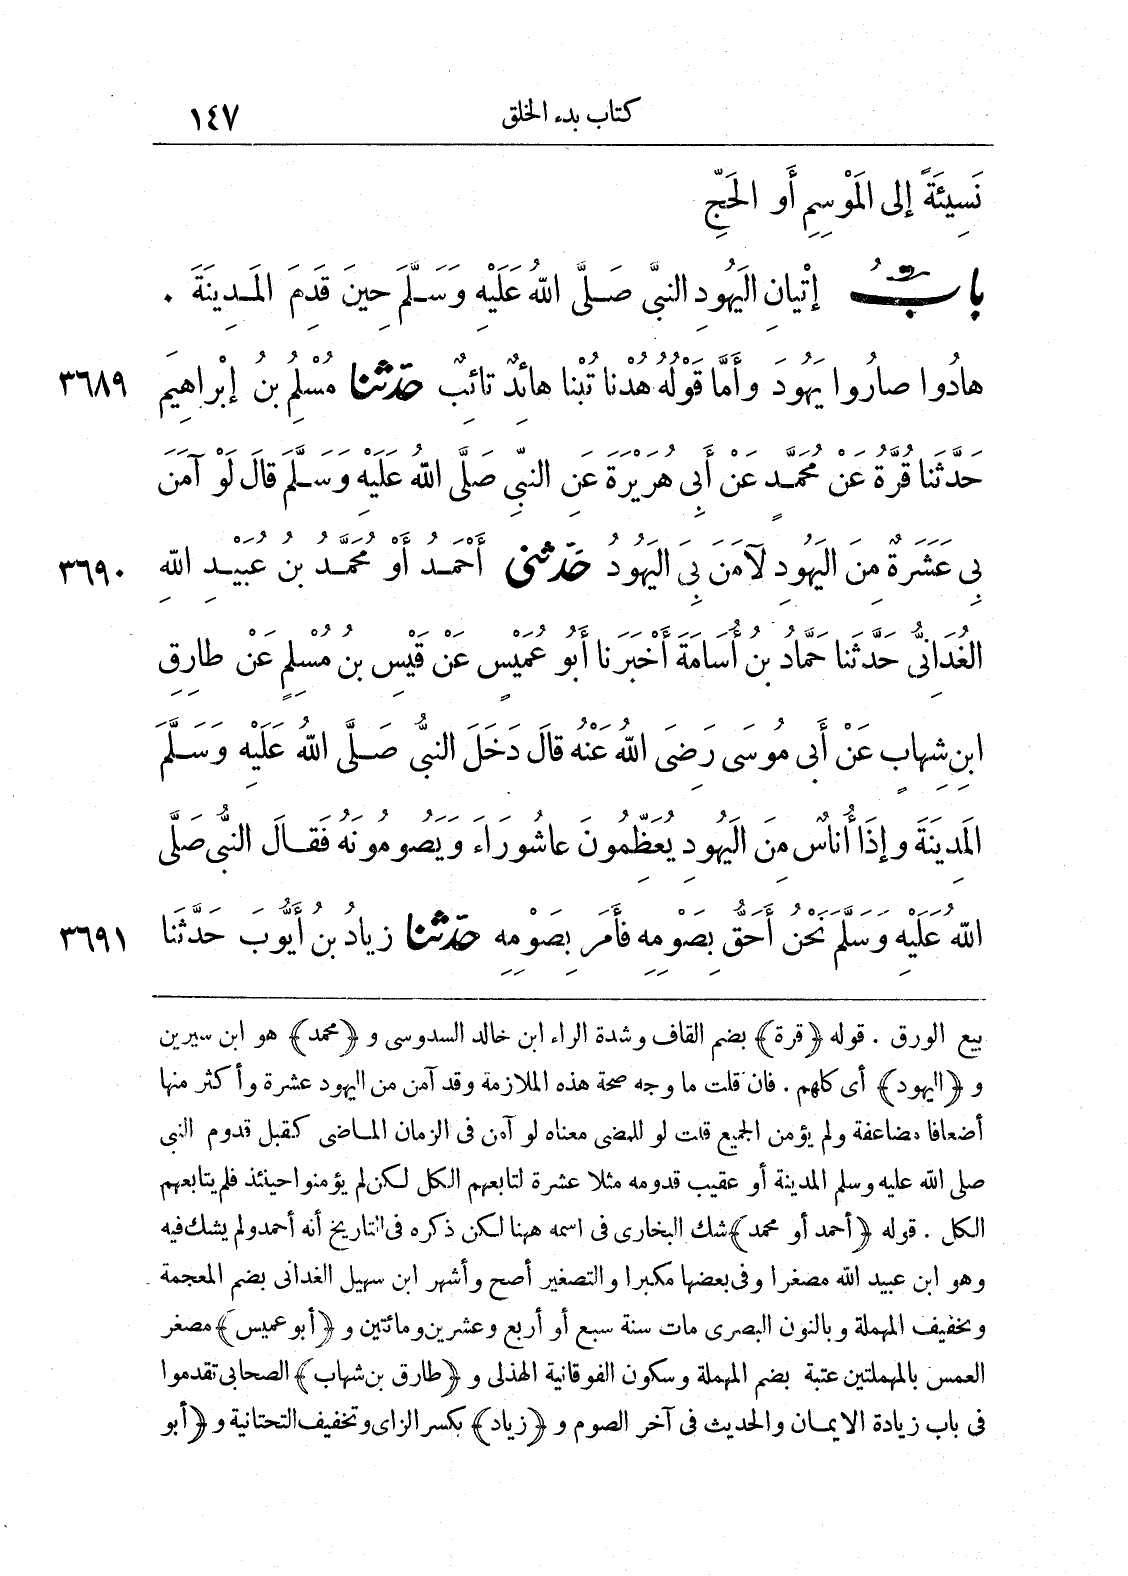 كتاب بدء الخلق ١٤٧
نَسِيئَةً إلى المَوْسِمِ أَو الحَجِّ
بابٌ إتْيانِ اليَهُودِ النبيَّ صَلَّى اللهُ عَلَيْهِ وَسَلَّمَ حِينَ قَدِمَ المَدِينَةَ .
هادُوا صارُوا يَهُودَ وأَمَّا قَوْلُهُ هُدْنا تُبْنا هائِدٌ تائِبٌ حَدَّثنا مُسْلِمُ بنُ إبْراهِيمَ ٣٦٨٩
حَدَّثَنا قُرَّةُ عَنْ مُحَمَّدٍ عَنْ أَبِى هُرَيْرَةَ عَنِ النبيِّ صَلَّى اللهُ عَلَيْهِ وَسَلَّمَ قالَ لَوْ آمَنَ
بِى عَشَرَةٌ مِنَ اليَهُودِ لَآمَنَ بِىَ اليَهُودُ حَدَّثنى أَحْمَدُ أَوْ مُحَمَّدُ بنُ عُبَيْدِ اللهِ ٣٦٩٠
الغُدَانِىُّ حَدَّثَنا حَمَّادُ بنُ أُسَامَةَ أَخْبَرَنا أَبُو عُمَيْسٍ عَنْ قَيْسِ بنِ مُسْلِمٍ عَنْ طارِقِ
ابنِ شِهابٍ عَنْ أَبِى مُوسَى رَضِىَ اللهُ عَنْهُ قالَ دَخَلَ النبيُّ صَلَّى اللهُ عَلَيْهِ وَسَلَّمَ
المَدِينَةَ وإِذَا أُناسٌ مِنَ اليَهُودِ يُعَظِّمُونَ عاشُورَاءَ ويَصُومُونَهُ فَقالَ النبيُّ صَلَّى
اللهُ عَلَيْهِ وَسَلَّمَ نَحْنُ أَحَقُّ بِصَوْمِهِ فأَمَرَ بِصَوْمِهِ حَدَّثنا زِيادُ بنُ أَيُّوبَ حَدَّثَنا ٣٦٩١
بيع الورق . قوله ﴿قرة﴾ بضم القاف وشدة الراء ابن خالد السدوسى و ﴿محمد﴾ هو ابن سيرين
و ﴿اليهود﴾ أى كلهم . فان قلت ما وجه صحة هذه الملازمة وقد آمن من اليهود عشرة وأكثر منها
أضعافا مضاعفة ولم يؤمن الجميع قلت لو للمضى معناه لو آمن فى الزمان الماضى كقبل قدوم النبي
صلى الله عليه وسلم المدينة أو عقيب قدومه مثلا عشرة لتابعهم الكل لكن لم يؤمنوا حينئذ فلم يتابعهم
الكل . قوله ﴿أحمد أو محمد﴾ شك البخارى فى اسمه ههنا لكن ذكره فى التاريخ أنه أحمد ولم يشك فيه
وهو ابن عبيد الله مصغرا وفى بعضها مكبرا والتصغير أصح وأشهر ابن سهيل الغدانى بضم المعجمة
وتخفيف المهملة وبالنون البصرى مات سنة سبع أو أربع وعشرين ومائتين و ﴿أبو عميس﴾ مصغر
العمس بالمهملتين عتبة بضم المهملة وسكون الفوقانية الهذلى و ﴿طارق بن شهاب﴾ الصحابى تقدموا
فى باب زيادة الايمان والحديث فى آخر الصوم و ﴿زياد﴾ بكسر الزاى وتخفيف التحتانية و ﴿أبو